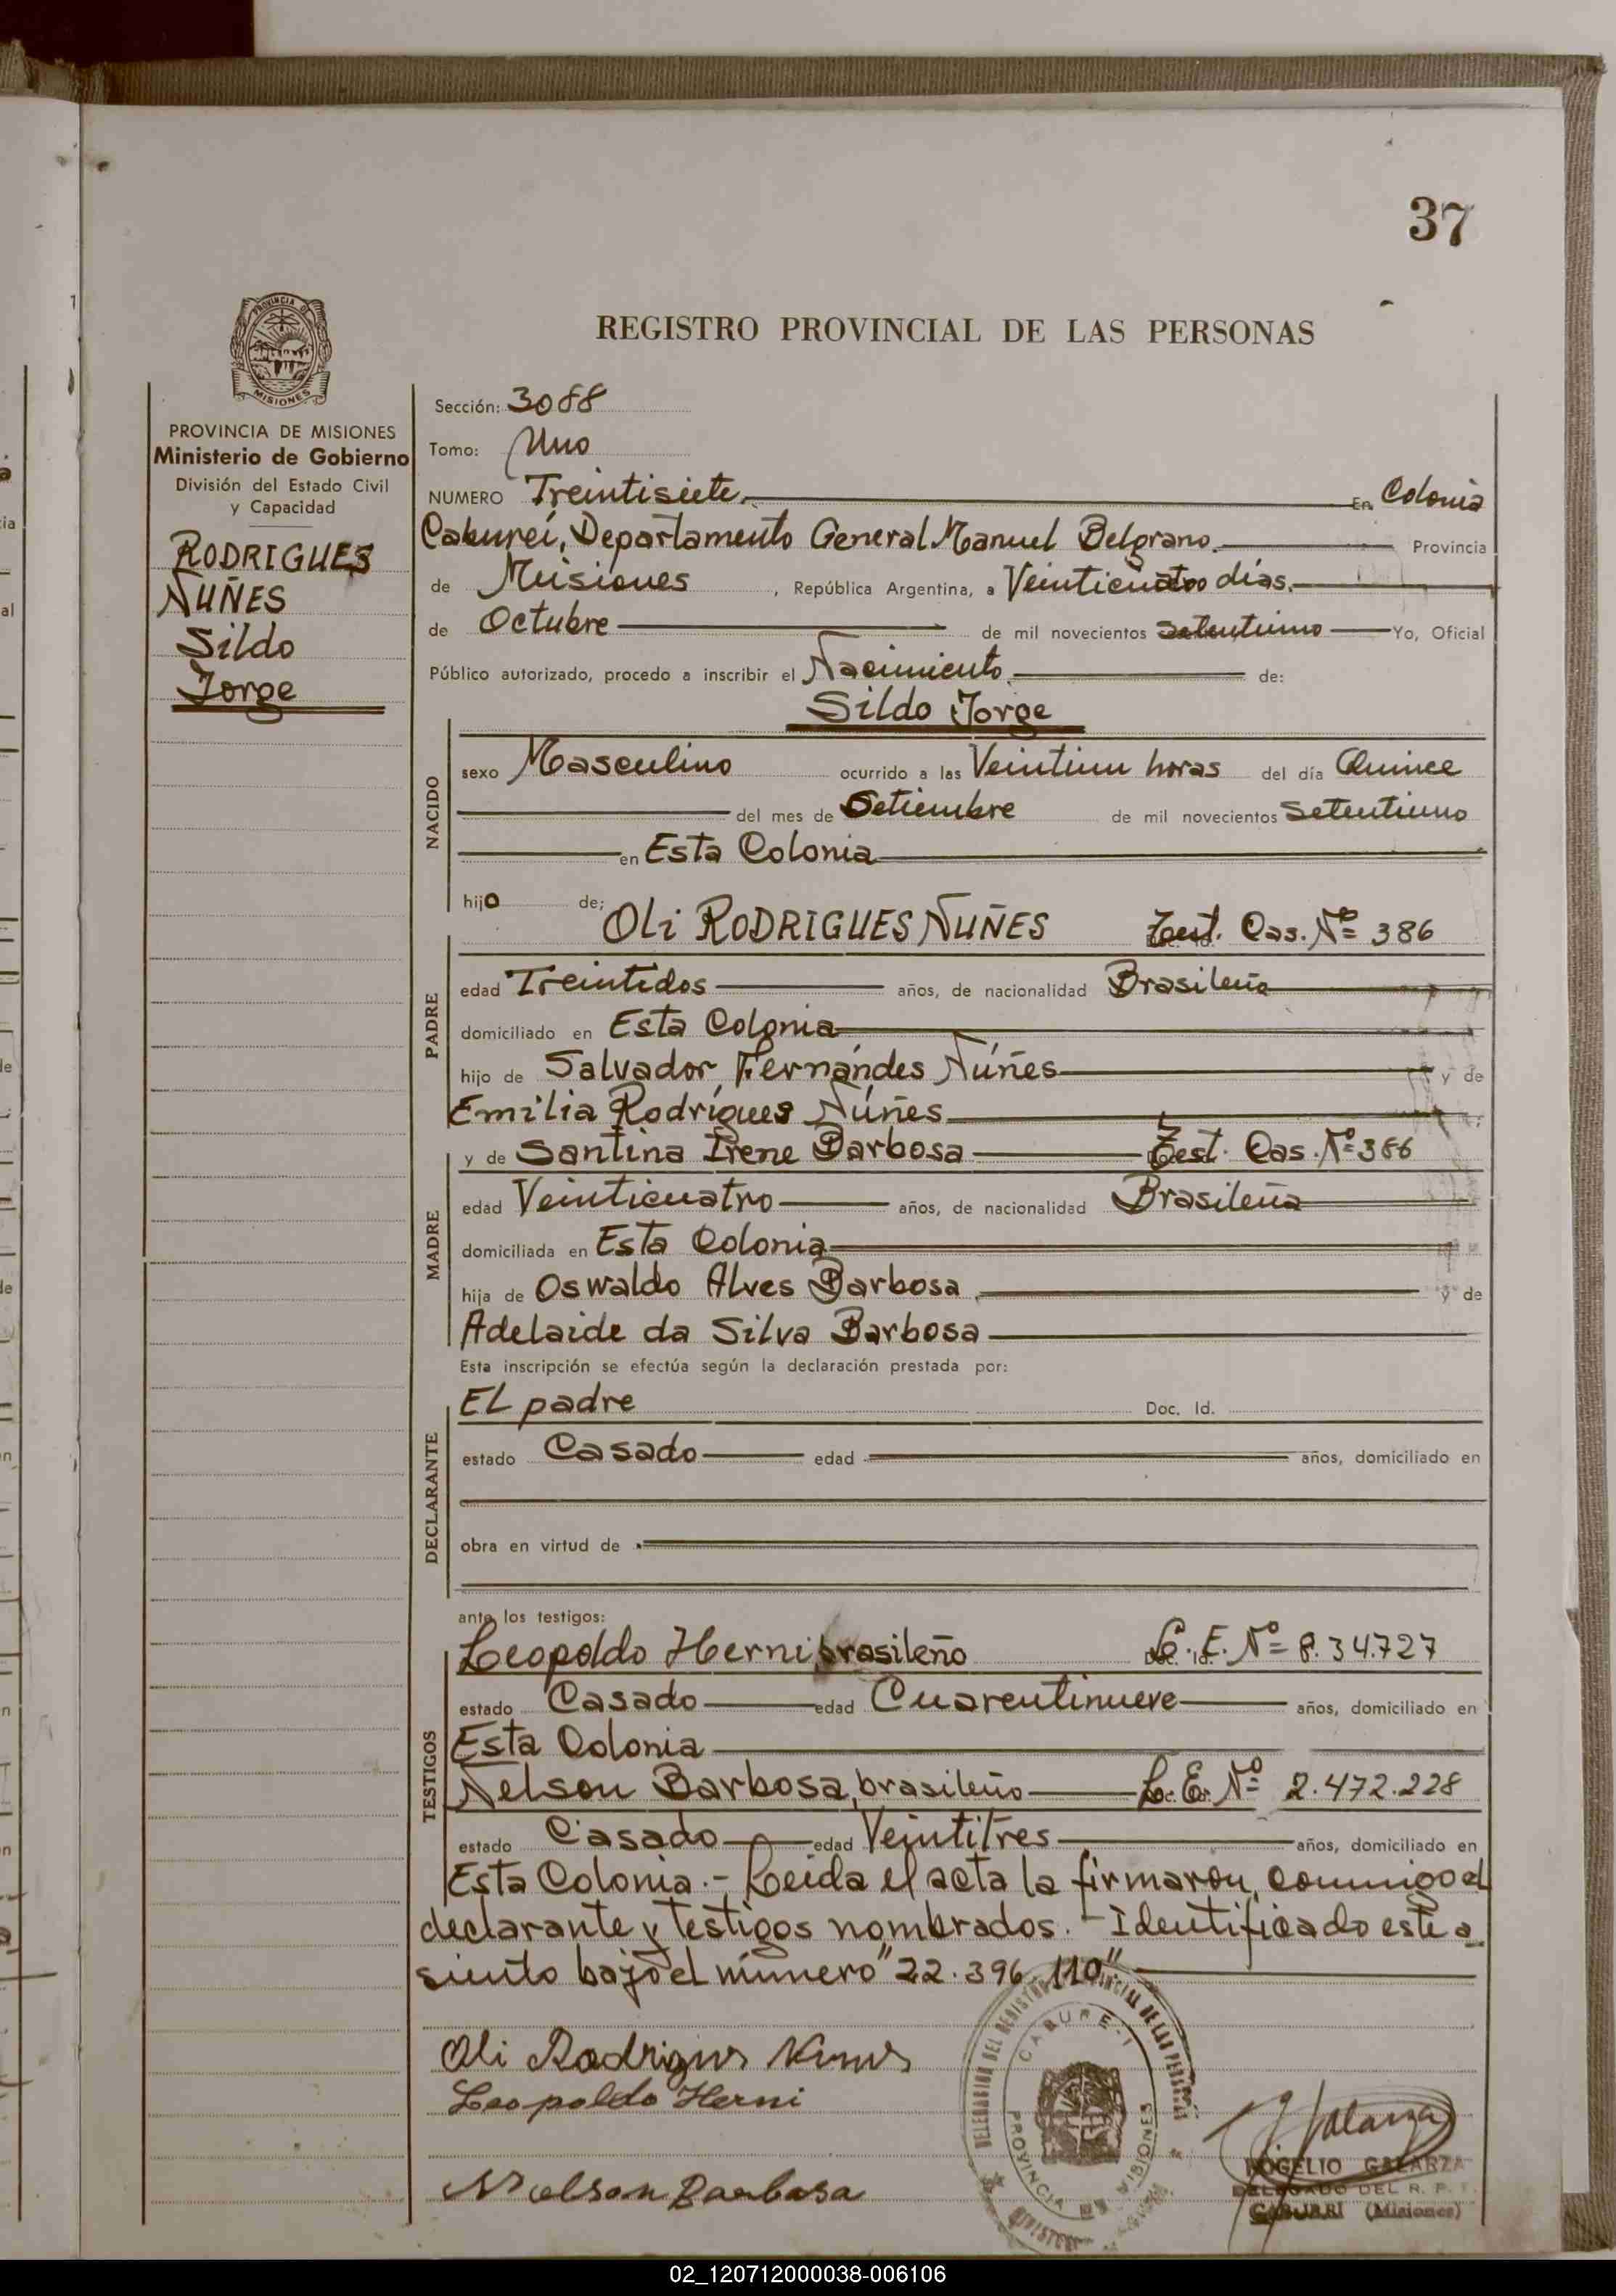 37
REGISTRO PROVINCIAL DE LAS PERSONAS
PROVINCIA DE
MISIONES
PROVINCIA DE MISIONES
Ministerio de Gobierno
División del Estado Civil
y Capacidad
RODRIGUES
NUÑES
Sildo
Jorge
Sección: 3088
Tomo: Uno
NUMERO Treintisiete. En Colonia
Caburei, Departamento General Manuel Belgrano. Provincia
de Misiones, República Argentina, a Veinticuatro días.
de Octubre de mil novecientos setentiuno Yo, Oficial
Público autorizado, procedo a inscribir el Nacimiento de:
Sildo Jorge
NACIDO
sexo Masculino ocurrido a las Veintiun horas del día Quince
del mes de Setiembre de mil novecientos Setentiuno
en Esta Colonia
hijo de:
PADRE
Oli RODRIGUES NUÑES Test. Cas. Nº 386
edad Treintidos años, de nacionalidad Brasileña
domiciliado en Esta Colonia
hijo de Salvador Fernándes Núñes y de
Emilia Rodrígues Núñes
MADRE
y de Santina Irene Barbosa Test. Cas. Nº 386
edad Veinticuatro años, de nacionalidad Brasileña
domiciliada en Esta Colonia
hija de Oswaldo Alves Barbosa y de
Adelaide da Silva Barbosa
Esta inscripción se efectúa según la declaración prestada por:
DECLARANTE
EL padre Doc. Id.
estado Casado edad años, domiciliado en
obra en virtud de
ante los testigos:
TESTIGOS
Leopoldo Herni brasileño L. E. Nº 8.34.727
estado Casado edad Cuarentinueve años, domiciliado en
Esta Colonia
Nelson Barbosa, brasileño L. E. Nº 2.472.228
estado Casado edad Veintitres años, domiciliado en
Esta Colonia.- Leida el acta la firmaron, conmigo el
declarante y testigos nombrados.- Identificado este a
siento bajo el número "22.396.110"
Oli Rodrigues Nunes
Leopoldo Herni
Nelson Barbosa
DELEGACION DEL REGISTRO PROVINCIAL DE LAS PERSONAS
CABURE-I
PROVINCIA DE MISIONES
Galarza
ROGELIO GALARZA
DELEGADO DEL R. P.
CABUREI (Misiones)
02_120712000038-006106